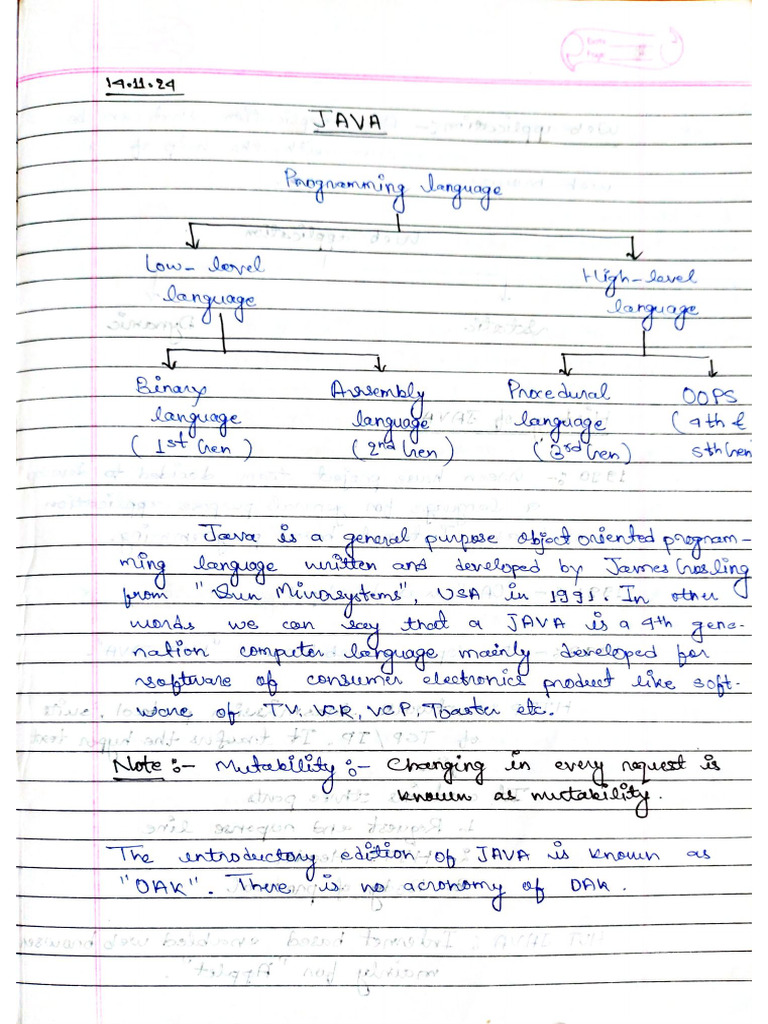 14.11.24
JAVA
Programming language
Low-level
language
High-level
language
Binary
language
(1st Gen)
Assembly
language
(2nd Gen)
Procedural
language
(3rd Gen)
OOPS
(4th &
5th Gen
Java is a general purpose object oriented program-
ming language written and developed by James Gosling
from "Sun Microsystems", USA in 1991. In other
words we can say that a JAVA is a 4th gene-
ration computer language mainly developed for
software of consumer electronics product like soft-
ware of TV, VCR, VCP, Toaster etc.
Note :- Mutability :- Changing in every request is
known as mutability.
The introductory edition of JAVA is known as
"OAK". There is no acronomy of OAK.